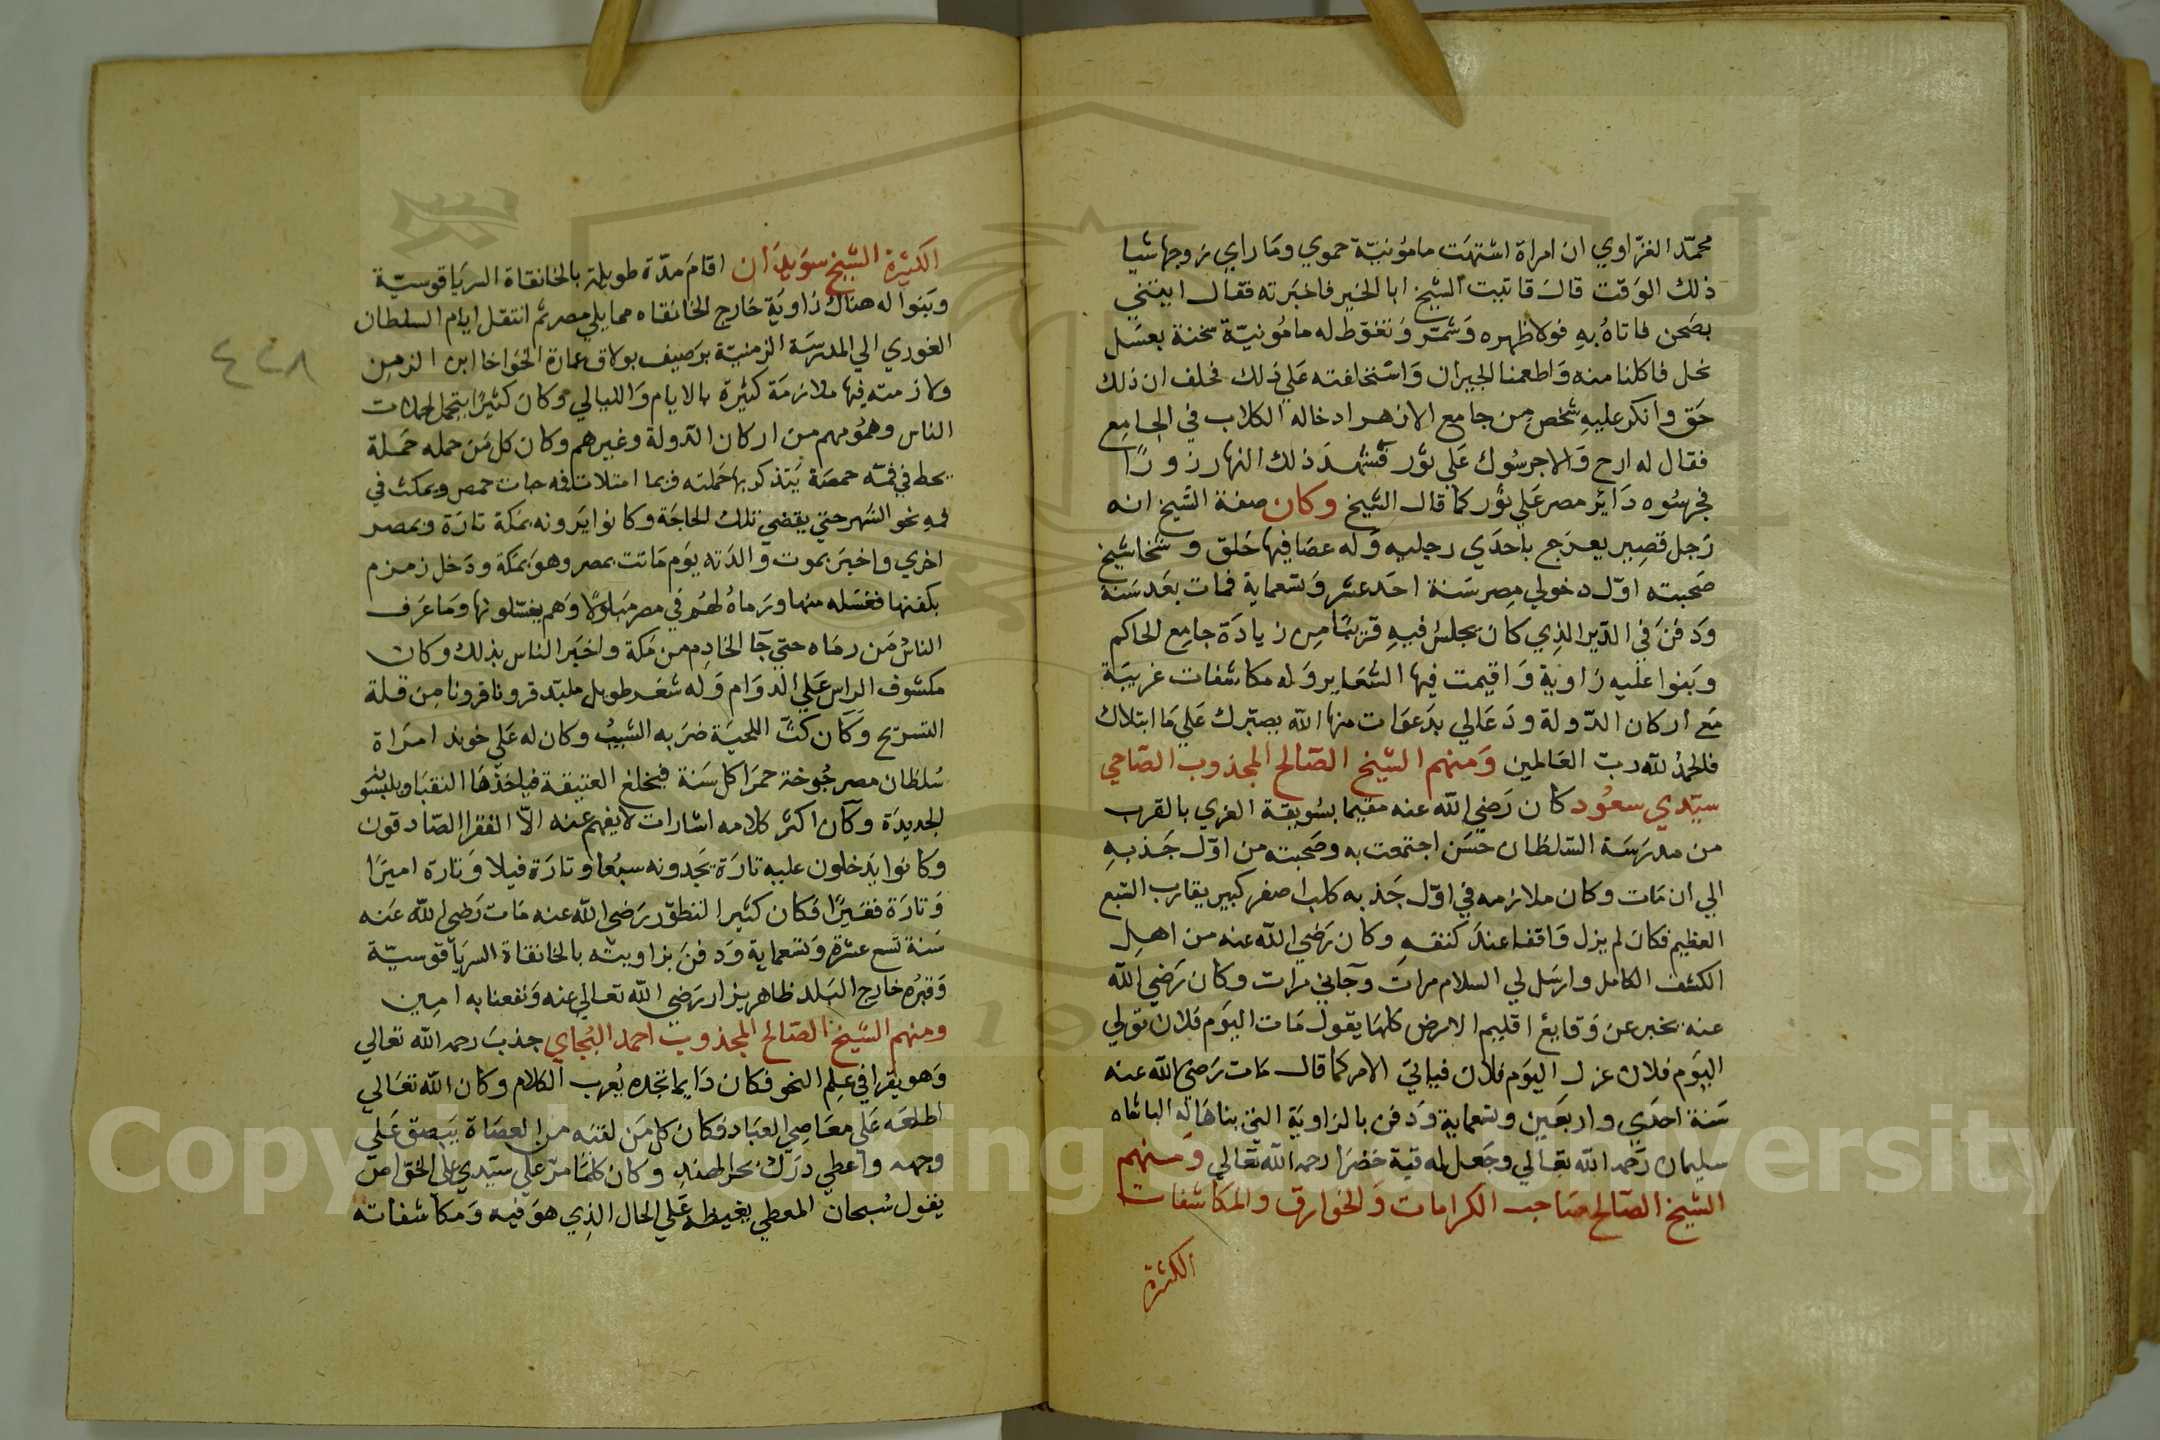 محمد الغزاوي ان امراة اشتهت مامونية حموي وما راي زوجها شيا
ذلك الوقت قال فاتيت الشيخ ابا الخير فاخبرته فقال ايتني
بصحن فاتاه به فولا ظهره وشمر وتغوط له مامونية سخنة بعسل
نحل فاكلنا منه واطعمنا الجيران واستحلفته علي ذلك فحلف ان ذلك
حق وانكر عليه شخص من جامع الازهر ادخاله الكلاب في الجامع
فقال له ارح والا جرسوك علي ثور فشهد ذلك النهار زورا
فجرسوه داير مصر علي ثور كما قال الشيخ وكان صفة الشيخ انه
رجل قصير يعرج باحدي رجليه وله عصا فيها حلق وشخاشيخ
صحبته اول دخولي مصر سنة احد عشر وتسعماية فمات بعد سنة
ودفن في الدير الذي كان يجلس فيه قريبا من زيادة جامع الحاكم
وبنوا عليه زاوية واقيمت فيها الشعاير وله مكاشفات غريبة
مع اركان الدولة ودعا لي بدعوات منها الله يصبرك علي ما ابتلاك
فالحمد لله رب العالمين ومنهم الشيخ الصالح المجذوب الصاحي
سيدي سعود كان رضي الله عنه مقيما بسويقة العزي بالقرب
من مدرسة السلطان حسن اجتمعت به وصحبته من اول جذبه
الي ان مات وكان ملازمه في اول جذبه كلب اصفر كبير يقارب السبع
العظيم فكان لم يزل واقفا عند كتفه وكان رضي الله عنه من اهل
الكشف الكامل وارسل لي السلام مرات وجاني مرات وكان رضي الله
عنه يخبر عن وقايع اقليم الارض كلها يقول مات اليوم فلان تولي
اليوم فلان عزل اليوم فلان فياتي الامر كما قال مات رضي الله عنه
سنة احدي واربعين وتسعماية ودفن بالزاوية التي بناها له الباشاه
سليمان رحمه الله تعالي وجعل له قبة خضرا رحمه الله تعالي ومنهم
الشيخ الصالح صاحب الكرامات والخوارق والمكاشفات
الكثيرة
الكثيرة الشيخ سويدان اقام مدة طويلة بالخانقاة السرياقوسية
وبنوا له هناك زاوية خارج الخانقاه مما يلي مصر ثم انتقل ايام السلطان
الغوري الي المدرسة الزمنية برصيف بولاق عمارة الخواجا ابن الزمن
ولازمته فيها ملازمة كثيرة بالايام والليالي وكان كثيرا يتحمل حملات
الناس وهمومهم من اركان الدولة وغيرهم وكان كل من حمله حملة
يحط في فمه حمصة يتذكر بها حملته فربما امتلات فه حبات حمص ويمكث في
فمه نحو الشهر حتي يقضي تلك الحاجة وكانوا يرونه بمكة تارة وبمصر
اخري واخبر بموت والدته يوم ماتت بمصر وهو بمكة ودخل زمزم
بكفنها فغسله منها ورماه لهم في مصر مبلولا وهم يغسلونها وما عرف
الناس من رماه حتي جا الخادم من مكة واخبر الناس بذلك وكان
مكشوف الراس علي الدوام وله شعر طويل ملبد قرونا قرونا من قلة
التسريح وكان كث اللحية ضربه الشيب وكان له علي خوند امراة
سلطان مصر جوخة حمرا كل سنة فيخلع العتيقة فياخذها النقبا ويلبسونه
الجديدة وكان اكثر كلامه اشارات لا يفهم عنه الا الفقرا الصادقون
وكانوا يدخلون عليه تارة يجدونه سبعا وتارة فيلا وتارة اميرا
وتارة فقيرا فكان كثير التطور رضي الله عنه مات رضي الله عنه
سنة تسع عشرة وتسعماية ودفن بزاويته بالخانقاة السرياقوسية
وقبره خارج البلد ظاهر يزار رضي الله تعالي عنه ونفعنا به امين
ومنهم الشيخ الصالح المجذوب احمد البجاي جذب رحمه الله تعالي
وهو يقرا في علم النحو فكان دايما تجده يعرب الكلام وكان الله تعالي
اطلعه علي معاصي العباد فكان كل من لقيه من العصاة يبصق علي
وجهه واعطي درك بحر الهند وكان كلما مر علي سيدي علي الخواص
يقول سبحان المعطي يغبطه علي الحال الذي هو فيه ومكاشفاته
٤٢٨
Copyright © King Saud University